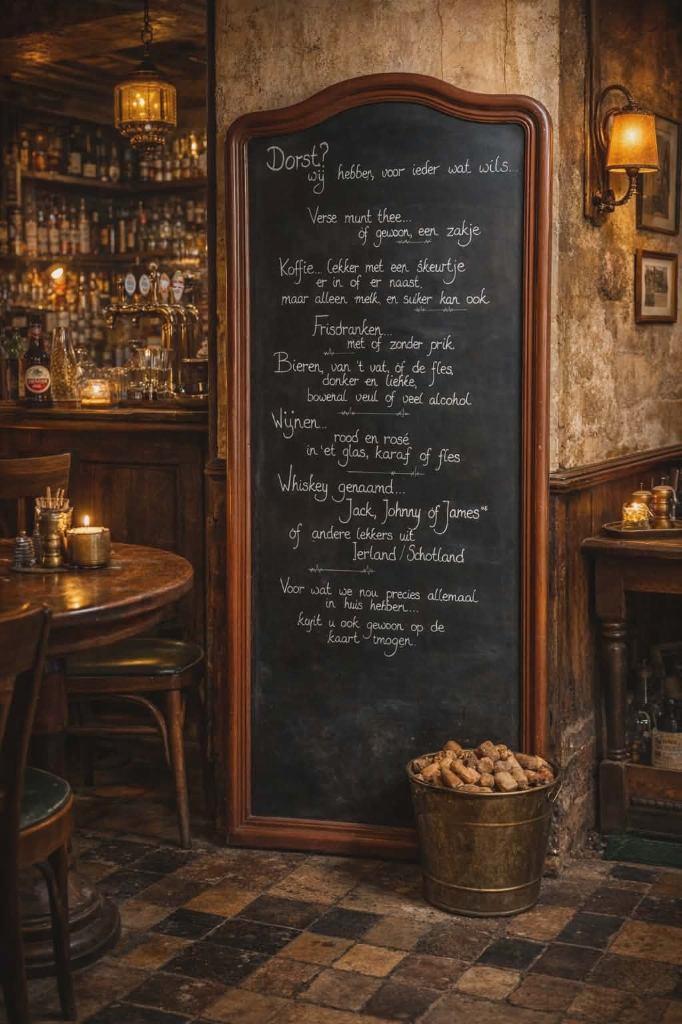 Dorst?
wij hebben, voor ieder wat wils...
Verse munt thee...
óf gewoon, een zakje
Koffie... lekker met een skeurtje
er in of er naast.
maar alleen melk en suiker kan ook
Frisdranken...
met of zonder prik.
Bieren, van 't vat, óf de fles,
donker en liehte,
bowenal veul of veel alcohol.
Wijnen...
rood en rosé
in 'et glas, karaf óf fles
Whiskey genaamd...
Jack, Johnny óf James
óf andere lekkers uit
Ierland/Schotland
Voor wat we nou precies allemaal
in huis hebben...
kujit u ook gewoon op de
kaart tmogen.